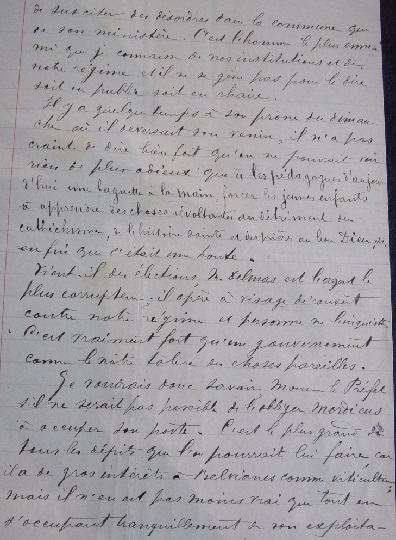 de susciter des désordres dans la commune que
ce son ministère. C'est l'homme le plus enne-
mi que je connaisse de nos institutions et de
notre régime et il ne se gêne pas pour le dire
soit en public soit en chaire.
Il y a quelque temps à son prône du diman-
che où il déversait son venin, il n'a pas
craint de dire bien fort qu'on ne pouvait voir
rien de plus odieux que des pédagogues d'aujour
d'hui une baguette à la main, forcer les jeunes enfants
à apprendre des choses révoltantes au détriment du
cathéchisme, de l'histoire sainte et des prières au bon Dieu,
enfin que c'était une honte.
Vient-il des élections, M. Delmas est l'agent le
plus corrupteur, il opère à visage découvert
contre notre régime et personne ne l'inquiète.
C'est vraiment fort qu'un gouvernement
comme le nôtre tolère des choses pareilles.
Je voudrais donc savoir Monsr le Préfet
s'il ne serait pas possible de l'obliger
à occuper son poste. C'est le plus grand de
tous les dépits que l'on pourrait lui faire, car
il a de gros intérêts à comme viticulteur
mais il n'en est pas moins vrai que tout en
s'occupant tranquillement de son exploita-